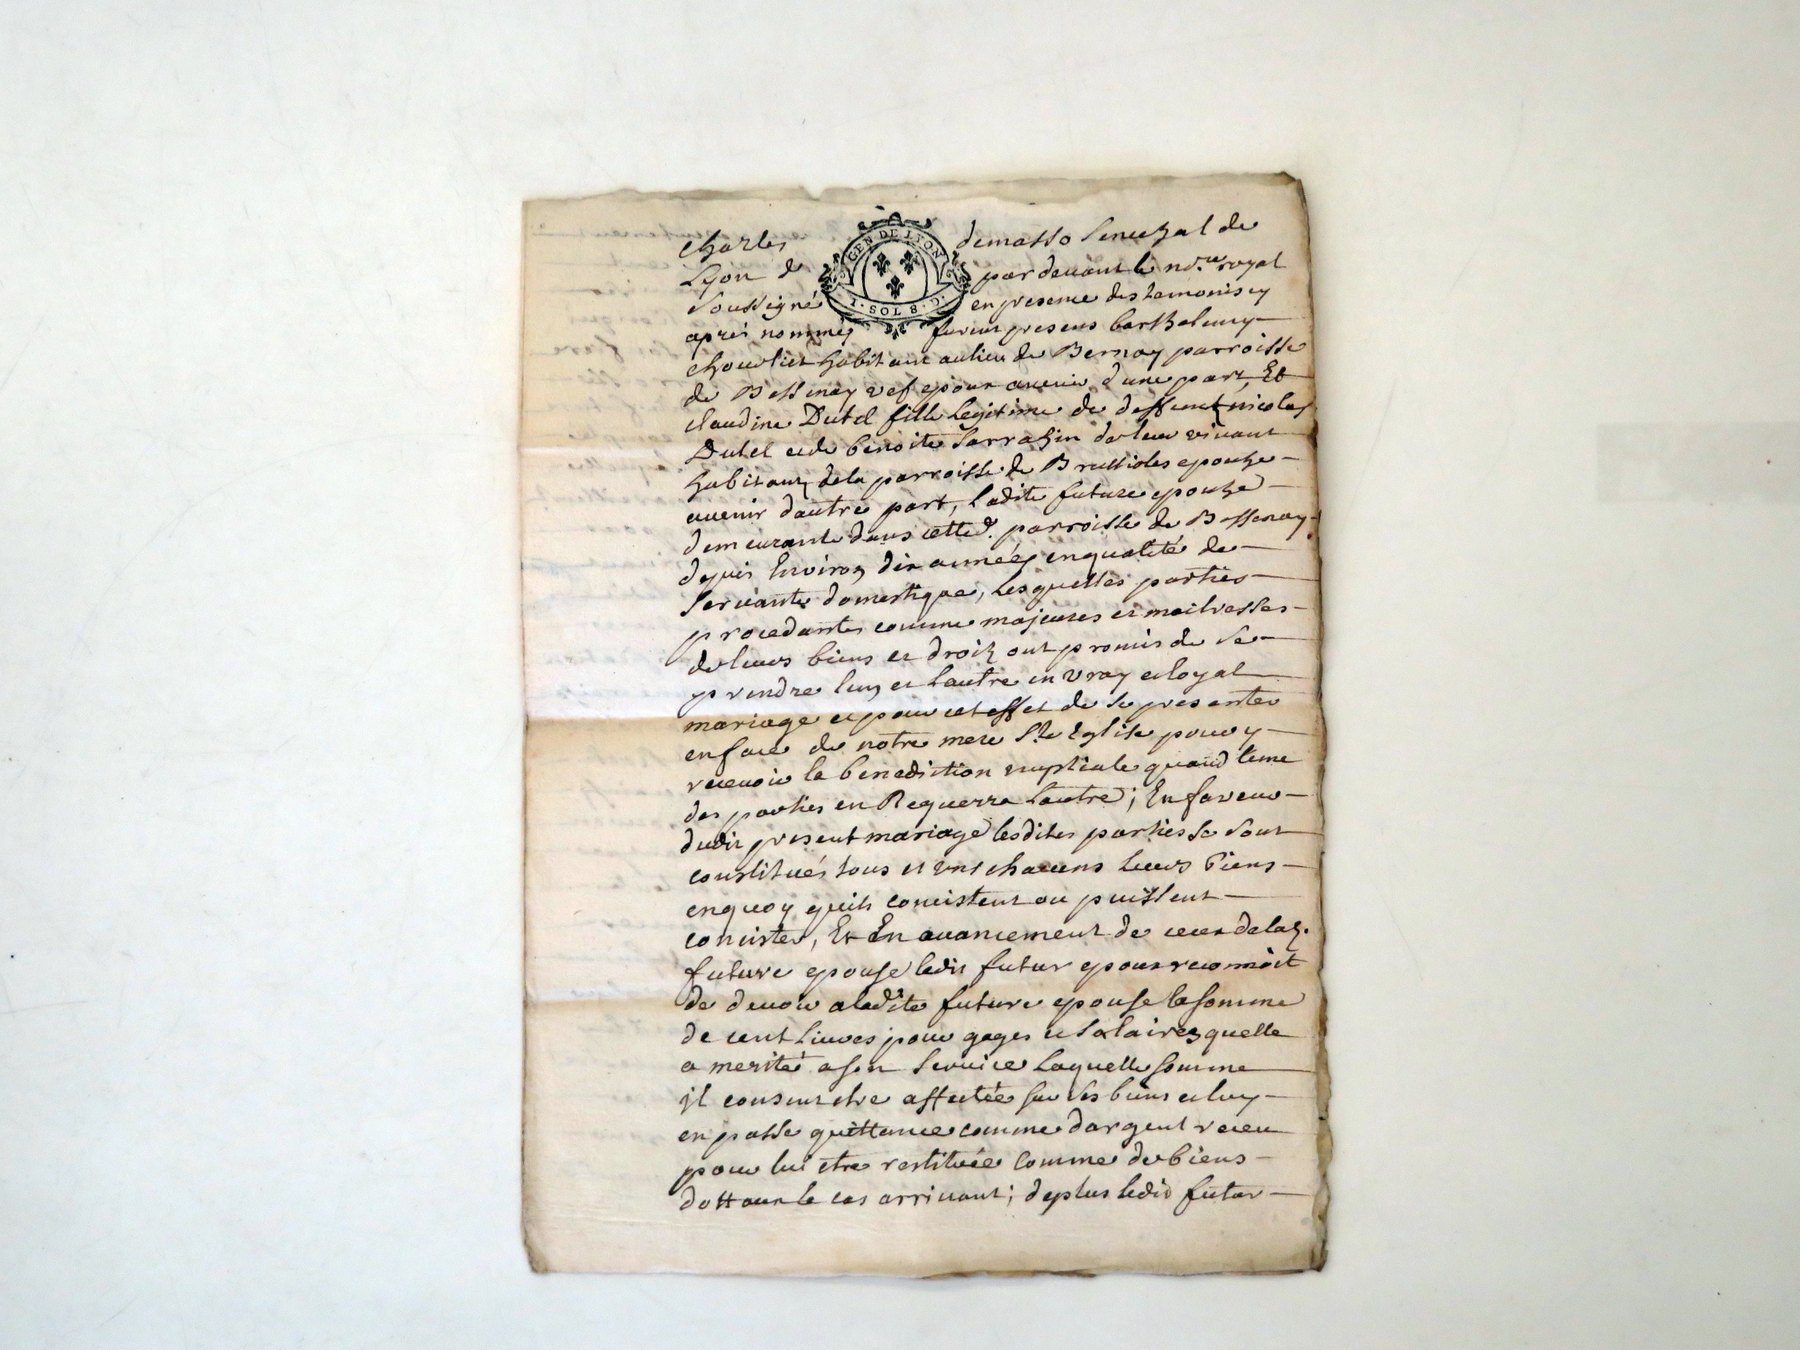 GEN DE LYON
1 · SOL 8 · D ·
Charles demasso Senechal de
Lyon & par devant le no.re royal
Soussigné en presence des temoins cy
apres nommés furent presens barthelemy
habitant au lieu de Bernay parroisse
de Bessenay vef epoux avenir d'une part, Et
claudine Dutel fille Legitime de deffunt nicolas
Dutel et de benoite Sarrazin de leur vivant
habitans de la parroisse de Brussioles epouze
avenir dautre part, ladite future epouze
demeurante dans cette d. parroisse de Bessenay
depuis Environ dix années en qualité de
Servante domestique, Lesquelles parties
procedantes comme majeures et maitresses
de leurs biens et droits ont promis de se
prendre lun et lautre en vray et loyal
mariage et pour cet effet de se presenter
en face de notre mere Ste Eglise pour y
recevoir la benediction nuptiale quand l'une
des parties en Requerra lautre; En faveur
dudit present mariage lesdites parties se sont
constitués tous et uns chacuns leurs biens
en quoy quils concistent ou puissent
concister, Et En avancement de ceux de lad.
future epouse ledit futur epoux reconnoit
de devoir a ladite future epouse la somme
de cent Livres pour gages et Salaires quelle
a merité a son Service Laquelle somme
il consent etre affectée sur ses biens et luy
en passe quittance comme dargent receu
pour lui etre restituée comme de biens
dottaux le cas arrivant; de plus ledit futur